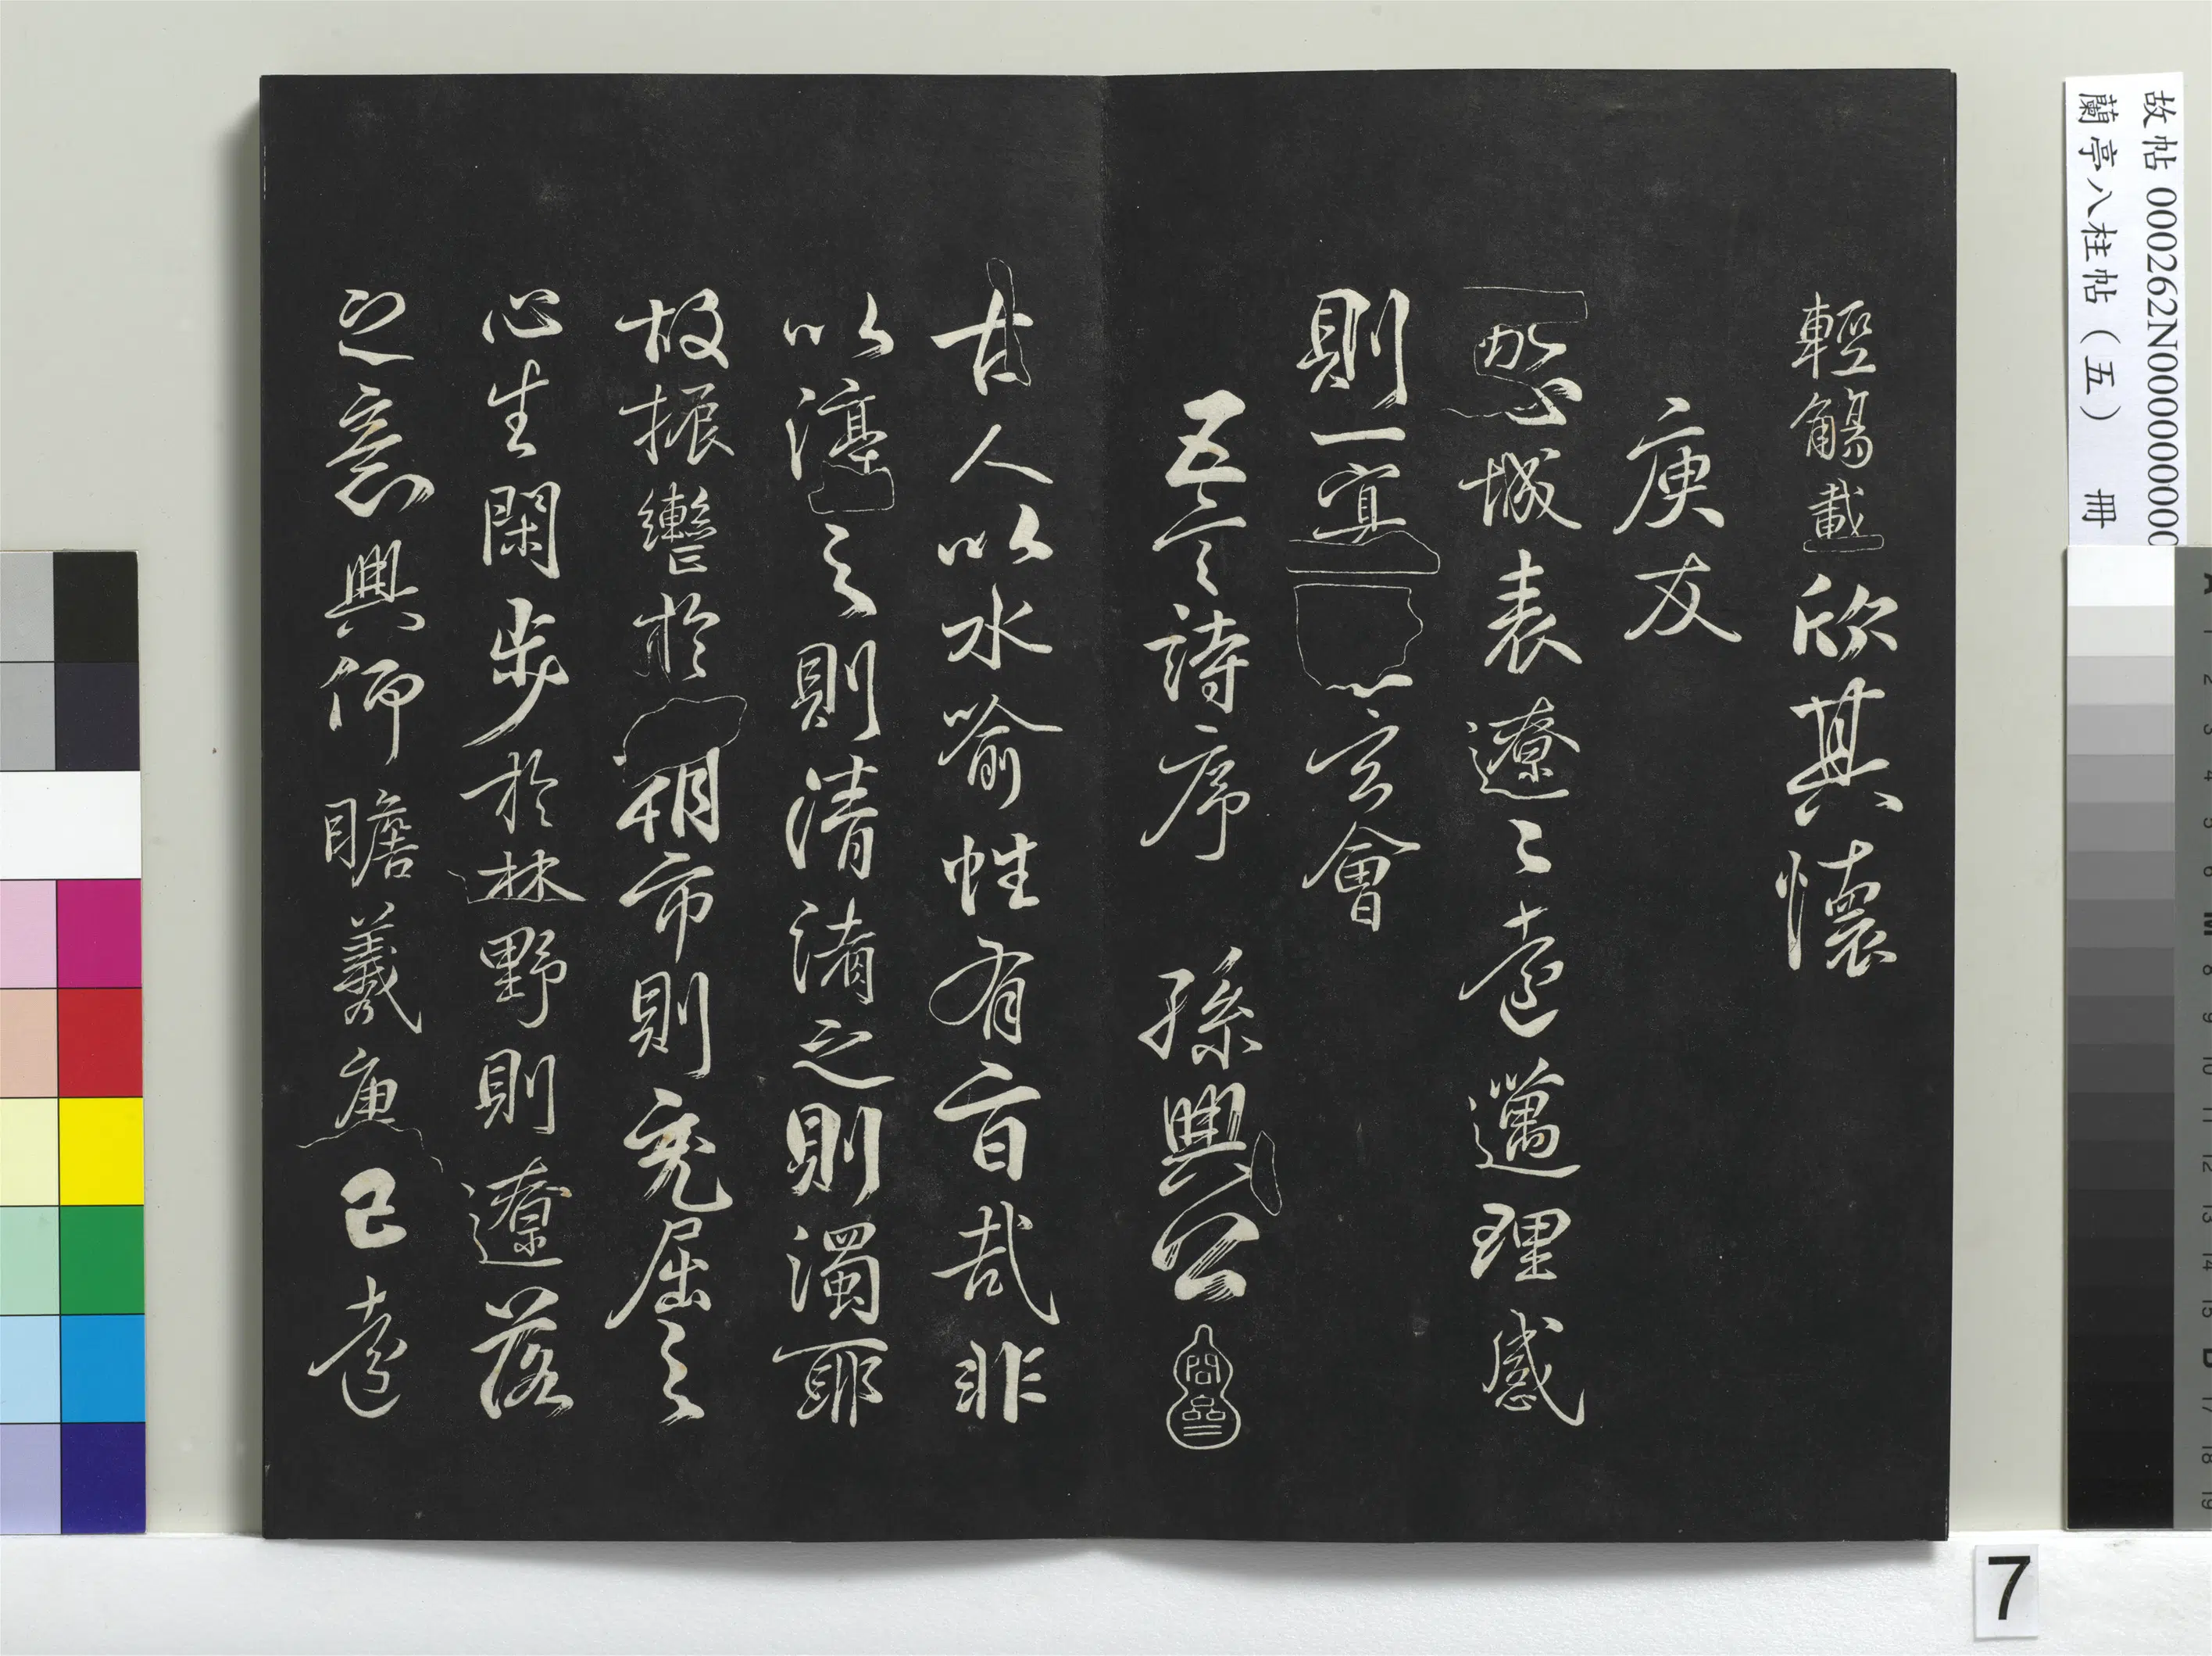 輕觴載欣其懷
庾友
心域表遼〻遠邁理感
則一冥玄會
五言詩序 孫興公
古人以水喻性有旨哉非
以渟之則清淆之則濁耶
故振轡於朝市則充屈之
心生閑步於林野則遼落
之意興仰瞻羲唐已遠
故帖 000262N000000000
蘭亭八柱帖（五） 冊
7